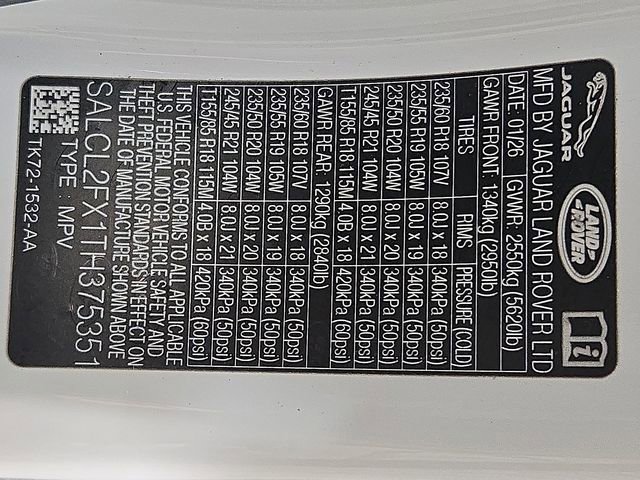 JAGUAR
LAND-
ROVER
i
MFD BY JAGUAR LAND ROVER LTD
DATE: 01/26 GVWR: 2550kg (5620lb)
GAWR FRONT: 1340kg (2950lb)
TIRES RIMS PRESSURE (COLD)
235/60 R18 107V 8.0J x 18 340kPa (50psi)
235/55 R19 105W 8.0J x 19 340kPa (50psi)
235/50 R20 104W 8.0J x 20 340kPa (50psi)
245/45 R21 104W 8.0J x 21 340kPa (50psi)
T155/85 R18 115M 4.0B x 18 420kPa (60psi)
GAWR REAR: 1290kg (2840lb)
235/60 R18 107V 8.0J x 18 340kPa (50psi)
235/55 R19 105W 8.0J x 19 340kPa (50psi)
235/50 R20 104W 8.0J x 20 340kPa (50psi)
245/45 R21 104W 8.0J x 21 340kPa (50psi)
T155/85 R18 115M 4.0B x 18 420kPa (60psi)
THIS VEHICLE CONFORMS TO ALL APPLICABLE
U.S. FEDERAL MOTOR VEHICLE SAFETY AND
THEFT PREVENTION STANDARDS IN EFFECT ON
THE DATE OF MANUFACTURE SHOWN ABOVE
SALCL2FX1TH375351
TYPE : MPV
TK72-1532-AA